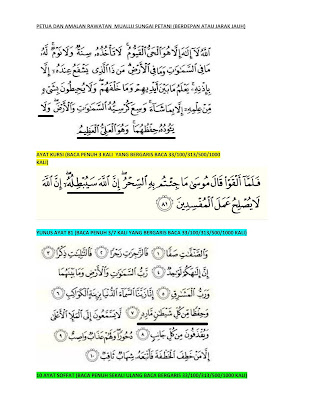 PETUA DAN AMALAN RAWATAN MUALIJ SUNGAI PETANI (BERDEPAN ATAU JARAK JAUH)
ٱللَّهُ لَآ إِلَٰهَ إِلَّا هُوَ ٱلْحَىُّ ٱلْقَيُّومُ لَا تَأْخُذُهُۥ سِنَةٌ وَلَا نَوْمٌ لَّهُۥ
مَا فِى ٱلسَّمَٰوَٰتِ وَمَا فِى ٱلْأَرْضِ مَن ذَا ٱلَّذِى يَشْفَعُ عِندَهُۥٓ إِلَّا
بِإِذْنِهِۦ يَعْلَمُ مَا بَيْنَ أَيْدِيهِمْ وَمَا خَلْفَهُمْ وَلَا يُحِيطُونَ بِشَىْءٍ
مِّنْ عِلْمِهِۦٓ إِلَّا بِمَا شَآءَ وَسِعَ كُرْسِيُّهُ ٱلسَّمَٰوَٰتِ وَٱلْأَرْضَ وَلَا
يَـُٔودُهُۥ حِفْظُهُمَا وَهُوَ ٱلْعَلِىُّ ٱلْعَظِيمُ
AYAT KURSI (BACA PENUH 3 KALI YANG BERGARIS BACA 33/100/313/500/1000
KALI)
فَلَمَّآ أَلْقَوْا۟ قَالَ مُوسَىٰ مَا جِئْتُم بِهِ ٱلسِّحْرُ إِنَّ ٱللَّهَ سَيُبْطِلُهُۥٓ إِنَّ ٱللَّهَ
لَا يُصْلِحُ عَمَلَ ٱلْمُفْسِدِينَ ٨١
YUNUS AYAT 81 (BACA PENUH 3/7 KALI YANG BERGARIS BACA 33/100/313/500/1000 KALI)
وَٱلصَّٰٓفَّٰتِ صَفًّا ١ فَٱلزَّٰجِرَٰتِ زَجْرًا ٢ فَٱلتَّٰلِيَٰتِ ذِكْرًا ٣
إِنَّ إِلَٰهَكُمْ لَوَٰحِدٌ ٤ رَّبُّ ٱلسَّمَٰوَٰتِ وَٱلْأَرْضِ وَمَا بَيْنَهُمَا
وَرَبُّ ٱلْمَشَٰرِقِ ٥ إِنَّا زَيَّنَّا ٱلسَّمَآءَ ٱلدُّنْيَا بِزِينَةٍ ٱلْكَوَاكِبِ ٦
وَحِفْظًا مِّن كُلِّ شَيْطَٰنٍ مَّارِدٍ ٧ لَّا يَسَّمَّعُونَ إِلَى ٱلْمَلَإِ ٱلْأَعْلَىٰ
وَيُقْذَفُونَ مِن كُلِّ جَانِبٍ ٨ دُحُورًا وَلَهُمْ عَذَابٌ وَاصِبٌ ٩
إِلَّا مَنْ خَطِفَ ٱلْخَطْفَةَ فَأَتْبَعَهُۥ شِهَابٌ ثَاقِبٌ ١٠
10 AYAT SOFFAT (BACA PENUH SEKALI ULANG BACA BERGARIS 33/100/313/500/1000 KALI)